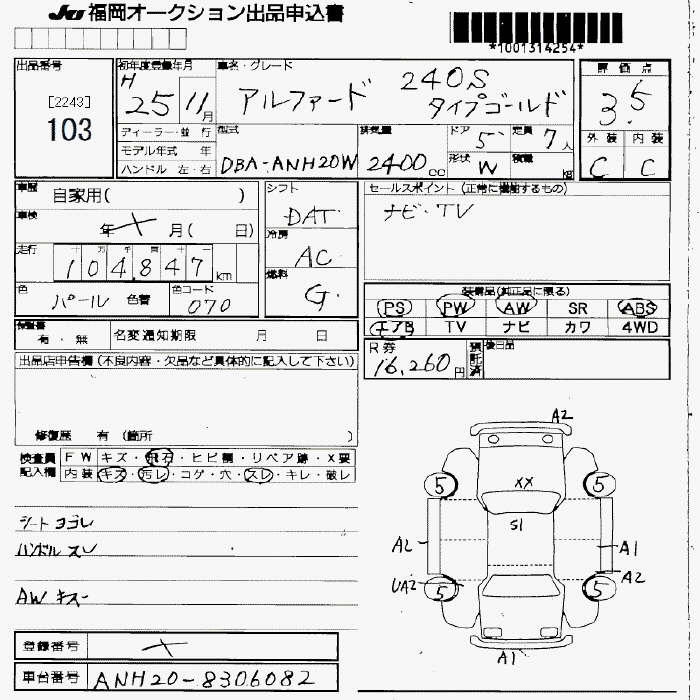 JU 福岡オークション出品申込書
*1001314254*
出品番号
[2243]
103
初年度登録年月
H 25 11月
車名・グレード
アルファード 240S タイプゴールド
評価点
3.5
外装 内装
C C
ディーラー・並行
モデル年式 年
ハンドル 左・右
型式
DBA-ANH20W
排気量
2400cc
ドア
5
定員
7人
形状
W
積量
kg
車歴 自家用( )
車検 年 × 月( 日)
走行 十 万 千 百 十
104,847 km
色 パール 色替
色コード 070
シフト
DAT
冷房
AC
燃料
G
セールスポイント (正常に機能するもの)
ナビ・TV
装備品(純正品に限る)
PS PW AW SR ABS
エアB TV ナビ カワ 4WD
保証書 有・無
名変通知期限 月 日
R券
16,260円
預託済
後日品
出品店申告欄 (不良内容・欠品など具体的に記入して下さい)
修復歴 有 (箇所 )
検査員記入欄
FW キズ・飛石・ヒビ割・リペア跡・X要
内装 キズ・汚レ・コゲ・穴・スレ・キレ・破レ
シートヨゴレ
ハンドルスレ
AWキズー
A2
5 5
XX
S1
A2 A1
UA2 A2
5 5
A1
登録番号 ×
車台番号 ANH20-8306082